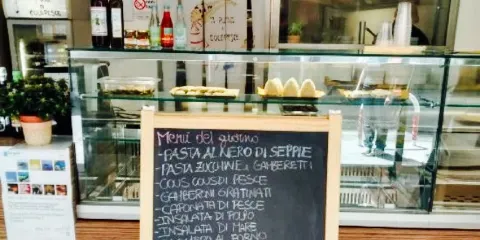 IL PUNTO
COLAPESCE
Menù del giorno
- PASTA AL NERO DI SEPPIE
- PASTA ZUCCHINE e GAMBERETTI
- COUS COUS DI PESCE
- GAMBERONI GRATINATI
- CAPONATA DI PESCE
- INSALATA DI POLPO
- INSALATA DI MARE
AL FORNO